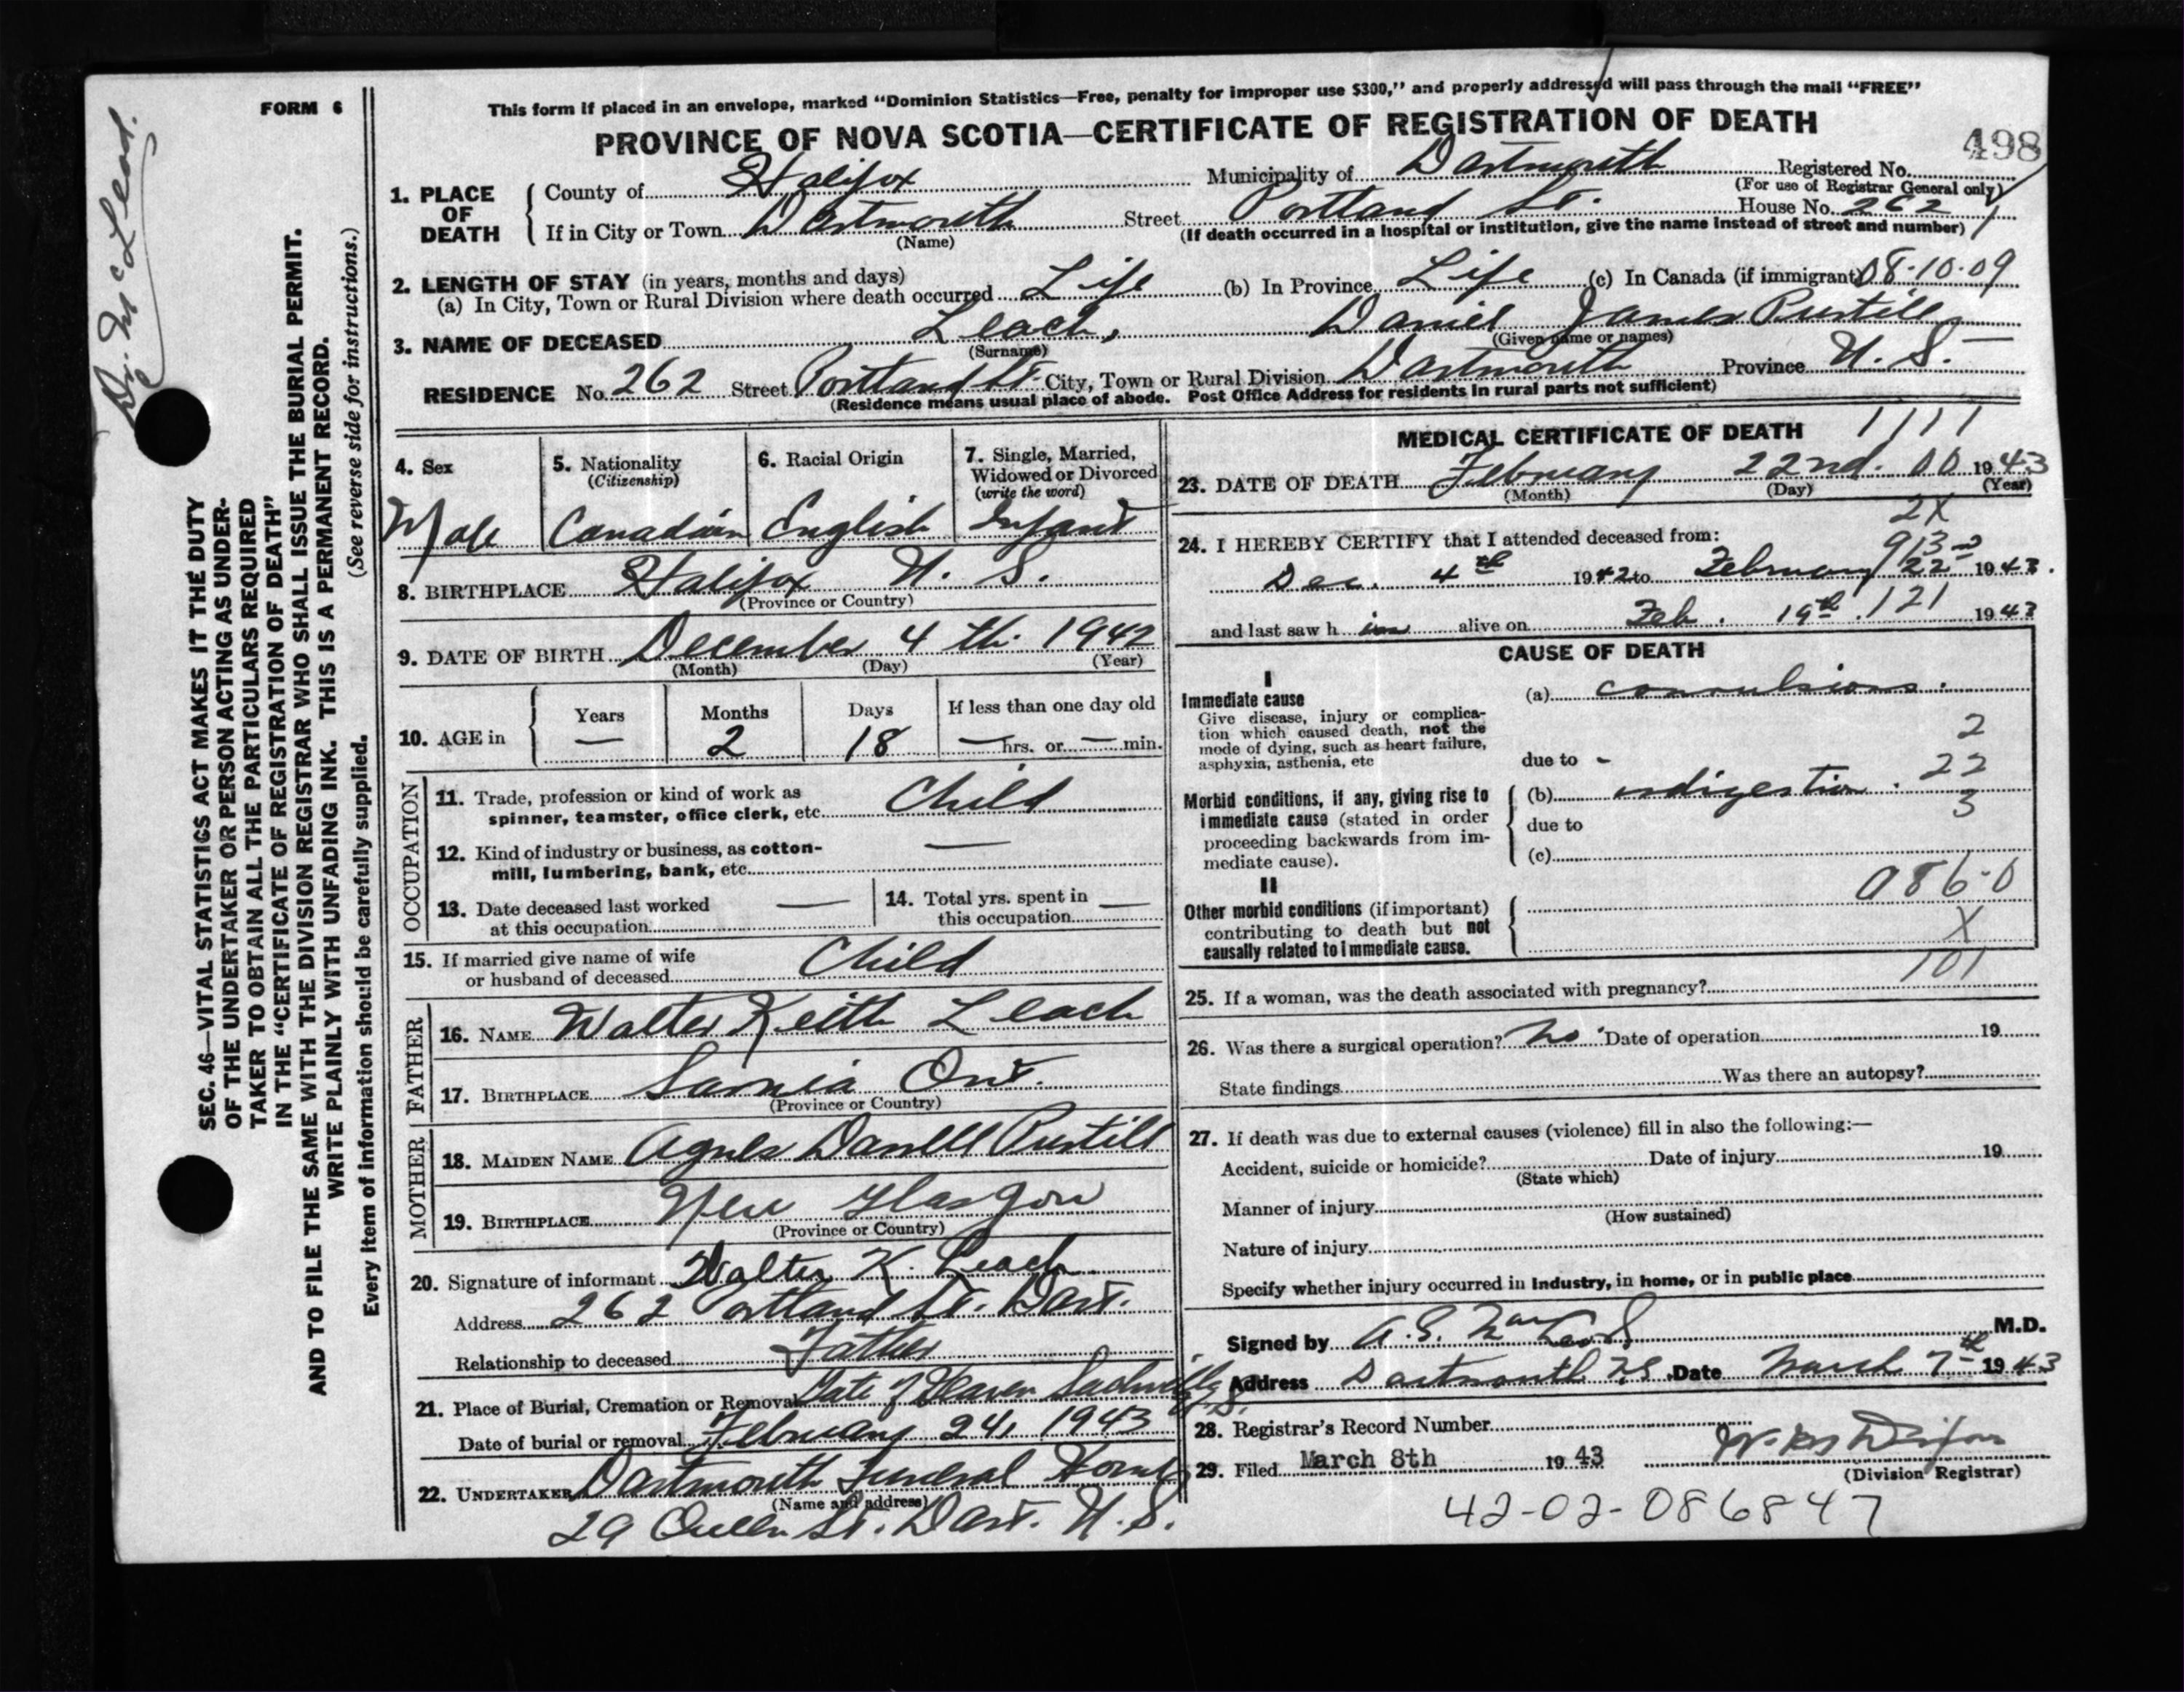 Dr. McLeod.
FORM 6
SEC. 46—VITAL STATISTICS ACT MAKES IT THE DUTY
OF THE UNDERTAKER OR PERSON ACTING AS UNDER-
TAKER TO OBTAIN ALL THE PARTICULARS REQUIRED
IN THE "CERTIFICATE OF REGISTRATION OF DEATH"
AND TO FILE THE SAME WITH THE DIVISION REGISTRAR WHO SHALL ISSUE THE BURIAL PERMIT.
WRITE PLAINLY WITH UNFADING INK. THIS IS A PERMANENT RECORD.
Every item of information should be carefully supplied. (See reverse side for instructions.)
This form if placed in an envelope, marked "Dominion Statistics—Free, penalty for improper use $300," and properly addressed will pass through the mail "FREE"
PROVINCE OF NOVA SCOTIA—CERTIFICATE OF REGISTRATION OF DEATH
498
1. PLACE OF DEATH
County of Halifax Municipality of Dartmouth Registered No.
(For use of Registrar General only)
If in City or Town Dartmouth Street Portland St. House No. 262
(Name) (If death occurred in a hospital or institution, give the name instead of street and number)
2. LENGTH OF STAY (in years, months and days)
(a) In City, Town or Rural Division where death occurred Life (b) In Province Life (c) In Canada (if immigrant) 08-10-09
3. NAME OF DECEASED Leach, Daniel James Purtill
(Surname) (Given name or names)
RESIDENCE No. 262 Street Portland St. City, Town or Rural Division Dartmouth Province N.S.
(Residence means usual place of abode. Post Office Address for residents in rural parts not sufficient)
4. Sex
5. Nationality (Citizenship)
6. Racial Origin
7. Single, Married, Widowed or Divorced (write the word)
Male Canadian English Infant
8. BIRTHPLACE Halifax N.S.
(Province or Country)
9. DATE OF BIRTH December 4 th. 1942
(Month) (Day) (Year)
10. AGE in
Years Months Days If less than one day old
— 2 18 — hrs. or — min.
OCCUPATION
11. Trade, profession or kind of work as
spinner, teamster, office clerk, etc. Child
12. Kind of industry or business, as cotton-
mill, lumbering, bank, etc. —
13. Date deceased last worked
at this occupation —
14. Total yrs. spent in
this occupation —
15. If married give name of wife
or husband of deceased Child
FATHER
16. NAME Walter Keith Leach
17. BIRTHPLACE Sarnia Ont.
(Province or Country)
MOTHER
18. MAIDEN NAME Agnes Purtill
19. BIRTHPLACE New Glasgow
(Province or Country)
20. Signature of informant Walter K. Leach
Address 262 Portland St. Dart.
Relationship to deceased Father
21. Place of Burial, Cremation or Removal Gate of Heaven N.S.
Date of burial or removal February 24, 1943
22. UNDERTAKER Dartmouth Funeral Home
(Name and address)
29 Queen St. Dart. N.S.
MEDICAL CERTIFICATE OF DEATH 1111
23. DATE OF DEATH February 22nd. 00 1943
(Month) (Day) (Year)
2X
24. I HEREBY CERTIFY that I attended deceased from: 913
Dec. 4th 1942 to February 22 1943.
and last saw him alive on Feb. 19th. 121 1943
CAUSE OF DEATH
I
Immediate cause
Give disease, injury or complica-
tion which caused death, not the
mode of dying, such as heart failure,
asphyxia, asthenia, etc
(a) convulsions.
2
due to -
22
Morbid conditions, if any, giving rise to
immediate cause (stated in order
proceeding backwards from im-
mediate cause).
(b) indigestion.
3
due to
(c)
086-0
II
Other morbid conditions (if important)
contributing to death but not
causally related to immediate cause.
X
101
25. If a woman, was the death associated with pregnancy?
26. Was there a surgical operation? No. Date of operation 19
State findings Was there an autopsy?
27. If death was due to external causes (violence) fill in also the following:—
Accident, suicide or homicide? Date of injury 19
(State which)
Manner of injury
(How sustained)
Nature of injury
Specify whether injury occurred in Industry, in home, or in public place
Signed by A.G. MacLeod M.D.
Address Dartmouth NS. Date March 7th 1943
28. Registrar's Record Number
29. Filed March 8th 1943
(Division Registrar)
42-02-086847